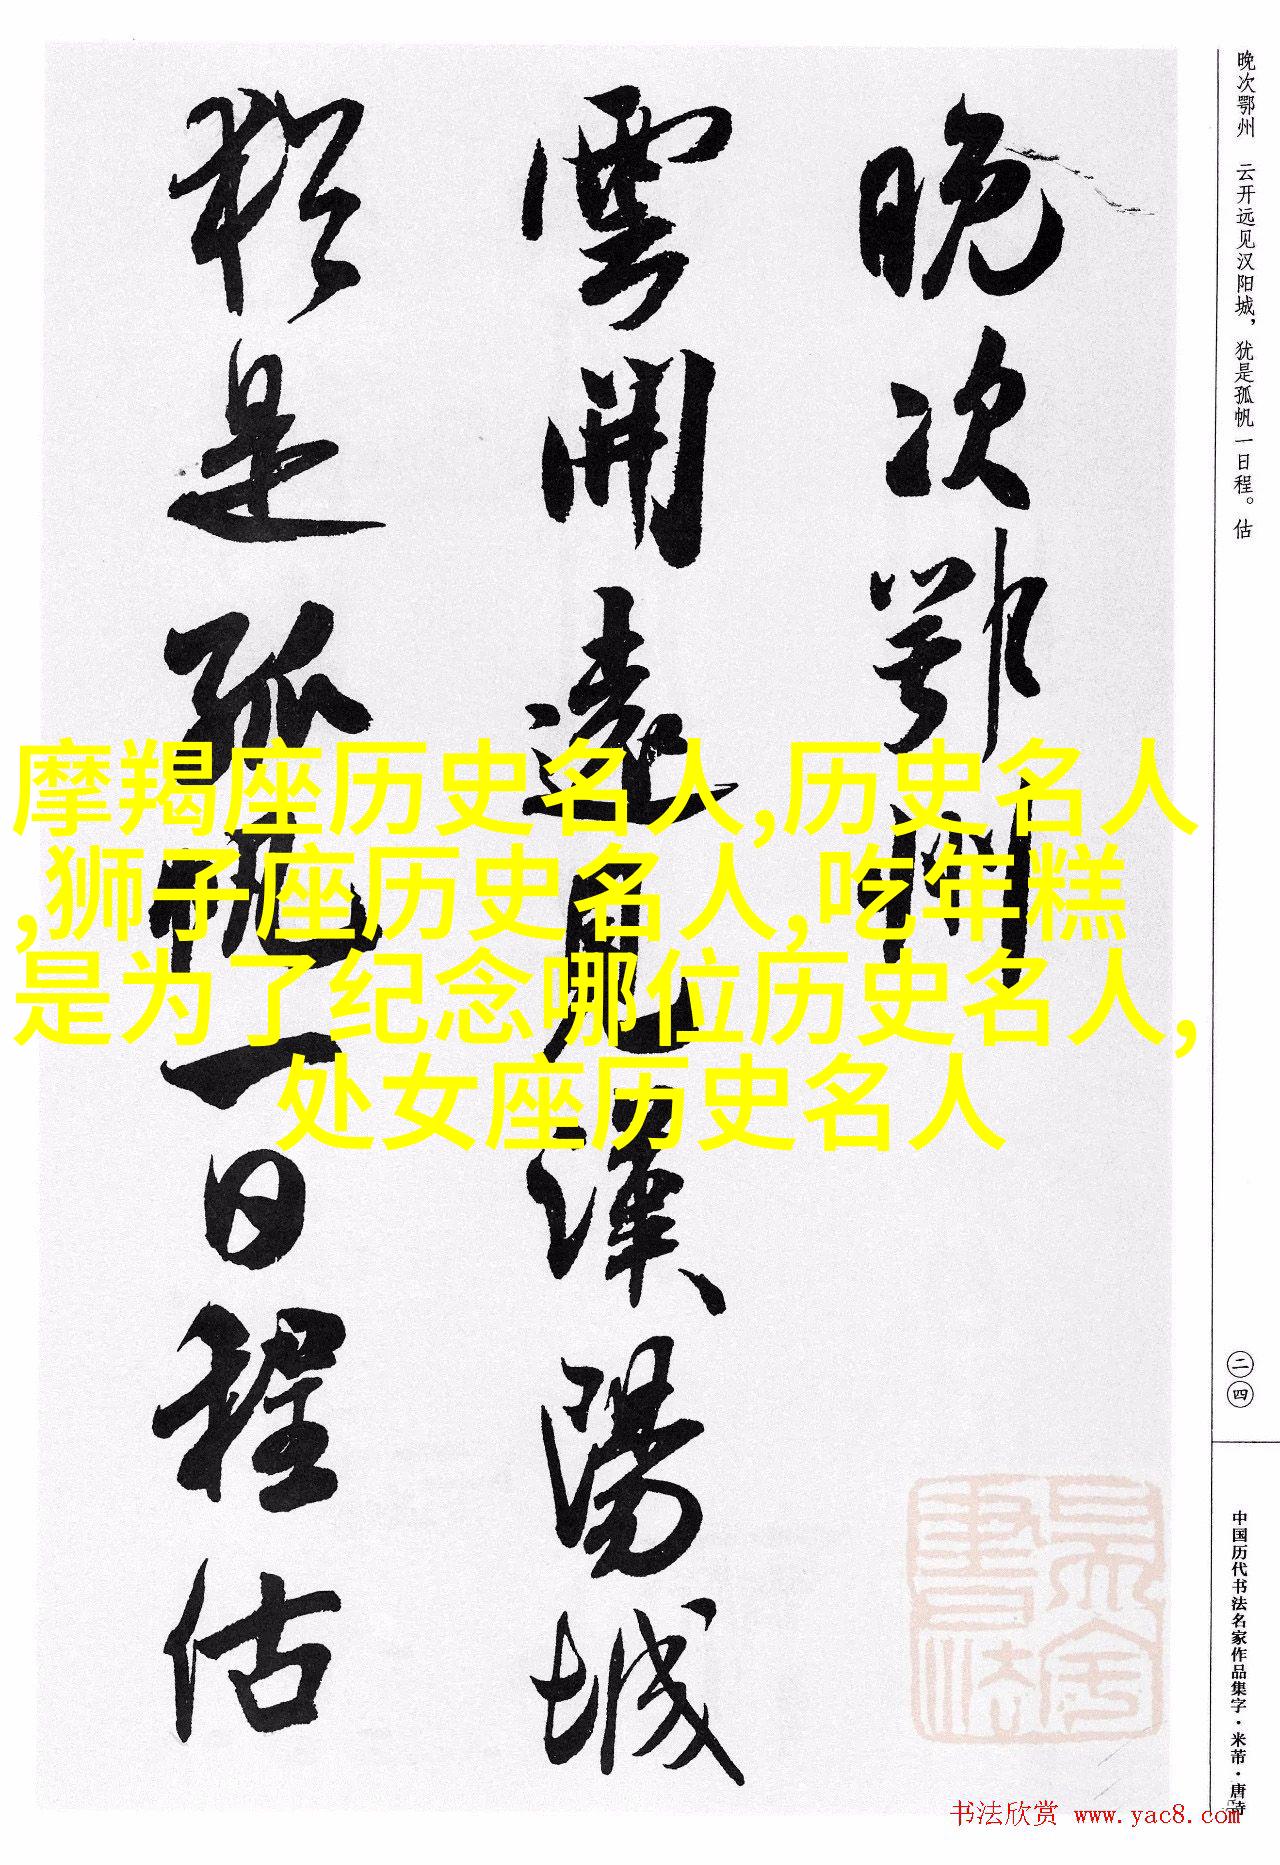 晚次鄂州 云开远见汉阳城，犹是孤帆一日程。估
晚次鄂州
雲開遠見漢陽城
猶是孤帆一日程估
摩羯座历史名人,历史名人
,狮子座历史名人,吃年糕
是为了纪念哪位历史名人,
处女座历史名人
二四
中国历代书法名家作品集字·米芾·唐诗
书法欣赏 www.yac8.com